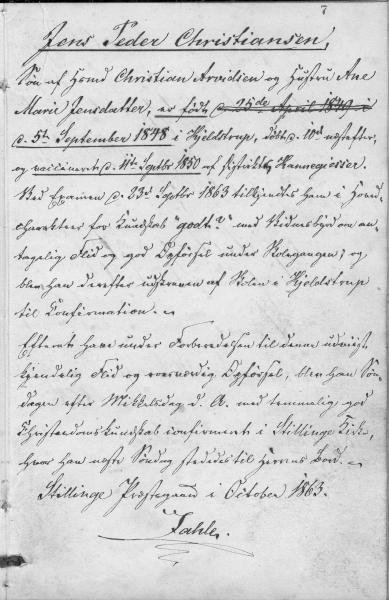 7
Jens Peder Christiansen,
Søn af Huusmd Christian Arvidsen og Hustru Ane
Marie Jensdatter, er født d. 25de April 1849 i
d. 5te September 1848 i Hjeldstrup, døbt d. 10de næstefter,
og vaccineret d. 11te Sptbr 1850 af Distriktsl. Hannegiesser.
Ved Examen d. 23de Sptbr 1863 tilkjendtes ham i Hoved-
charakteer for Kundskab "godt?" med Vidnesbyrd om an-
tagelig Flid og god Opførsel under Skolegangen; og
blev han derefter udskreven af Skolen i Hjeldstrup
til Confirmation.
Efterat have under Forberedelsen til denne udviist
kjendelig Flid og Opførsel, blev han Søn-
dagen efter Mikkelsdag d. A. med temmelig god
Christendomskundskab confirmeret i Stillinge Kirke,
hvor han næste Søndag stededes til Herrens Bord.
Stillinge Præstegaard i October 1863.